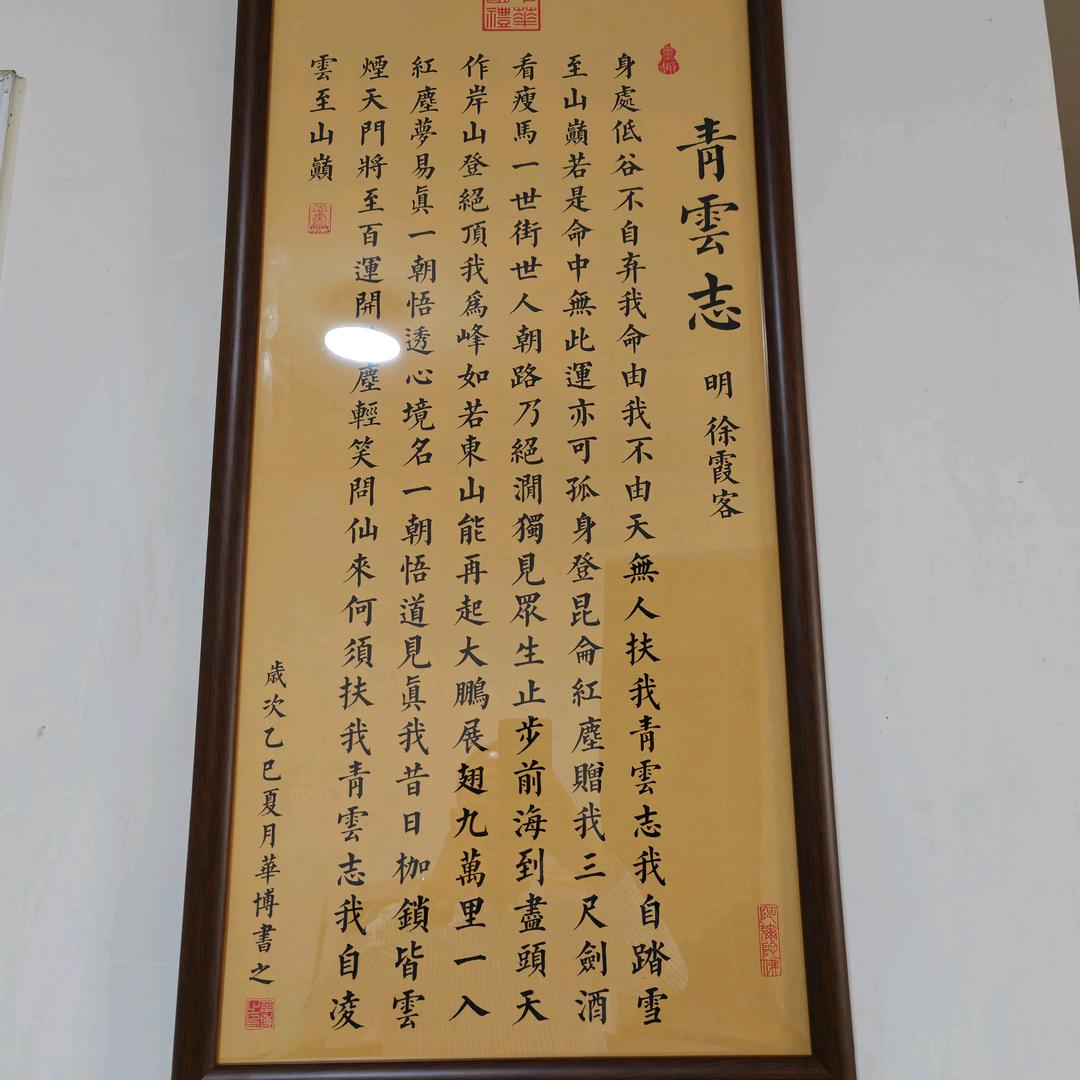 青雲志 明 徐霞客
身處低谷不自弃我命由我不由天無人扶我青雲志我自踏雪
至山巔若是命中無此運亦可孤身登昆侖紅塵贈我三尺劍酒
看瘦馬一世街世人朝路乃絕澗獨見眾生止步前海到盡頭天
作岸山登絕頂我爲峰如若東山能再起大鵬展翅九萬里一入
紅塵夢易眞一朝悟透心境名一朝悟道見眞我昔日枷鎖皆雲
煙天門將至百運開塵輕笑問仙來何須扶我青雲志我自凌
雲至山巔
歲次乙巳夏月華博書之
阿彌陀佛